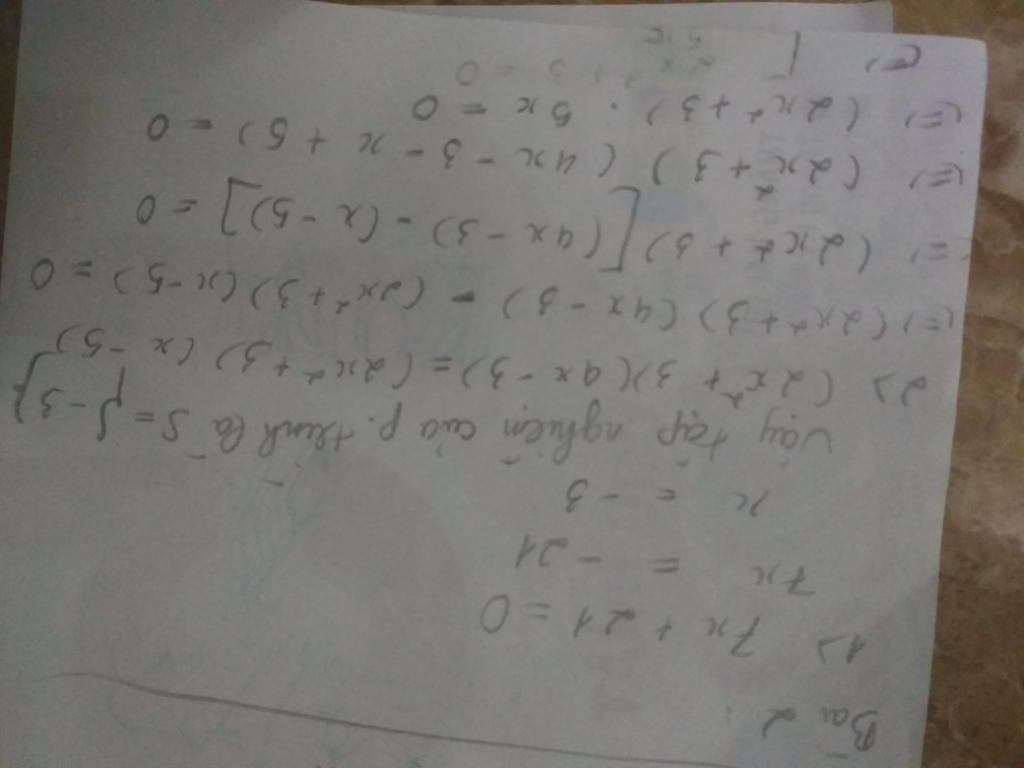 Bài 2:
1> 7x + 21 = 0
7x = -21
x = -3
Vậy tập nghiệm của p. trình là S = { -3 }
2> (2x² + 3)(4x - 3) = (2x² + 3)(x - 5)
(=) (2x² + 3)(4x - 3) - (2x² + 3)(x - 5) = 0
(=) (2x² + 3)[(4x - 3) - (x - 5)] = 0
(=) (2x² + 3)(4x - 3 - x + 5) = 0
(=) (2x² + 3) . 5x = 0
(=) [ 2x² + 3 = 0
5x